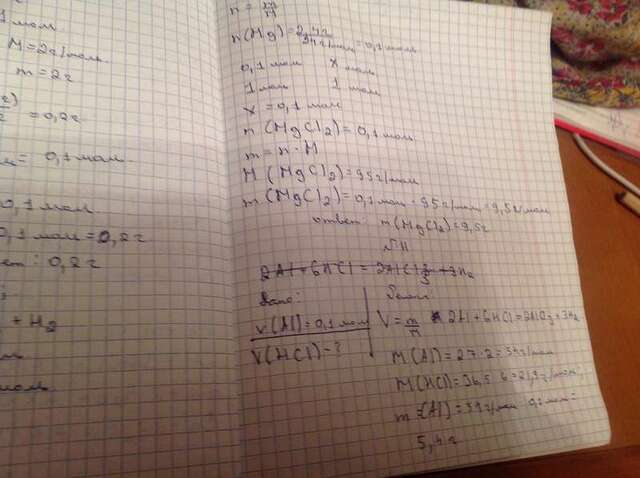 1 мол
M = 2 г/моль
m = 2 г
= 0,2 г
= 0,1 мол
0,1 мол
0,1 мол = 0,2 г
ет: 0,2 г
+ H2
мол
n = m/M
n(Mg) = 2,4 г / 24 г/мол = 0,1 мол
0,1 мол X мол
1 мол 1 мол
X = 0,1 мол
n (MgCl2) = 0,1 мол
m = n · M
M (MgCl2) = 95 г/мол
m (MgCl2) = 0,1 мол · 95 г/мол = 9,5 г/мол
ответ: m(MgCl2) = 9,5 г
2Al + 6HCl = 2AlCl3 + 3H2
Дано: Решен:
V(Al) = 0,1 мол V = m/M 2Al + 6HCl = 2AlCl3 + 3H2
V(HCl) - ?
M(Al) = 27 · 2 = 54 г/мол
M(HCl) = 36,5 · 6 = 219 г/мол
m(Al) = 54 г/мол 0,1 мол =
5,4 г